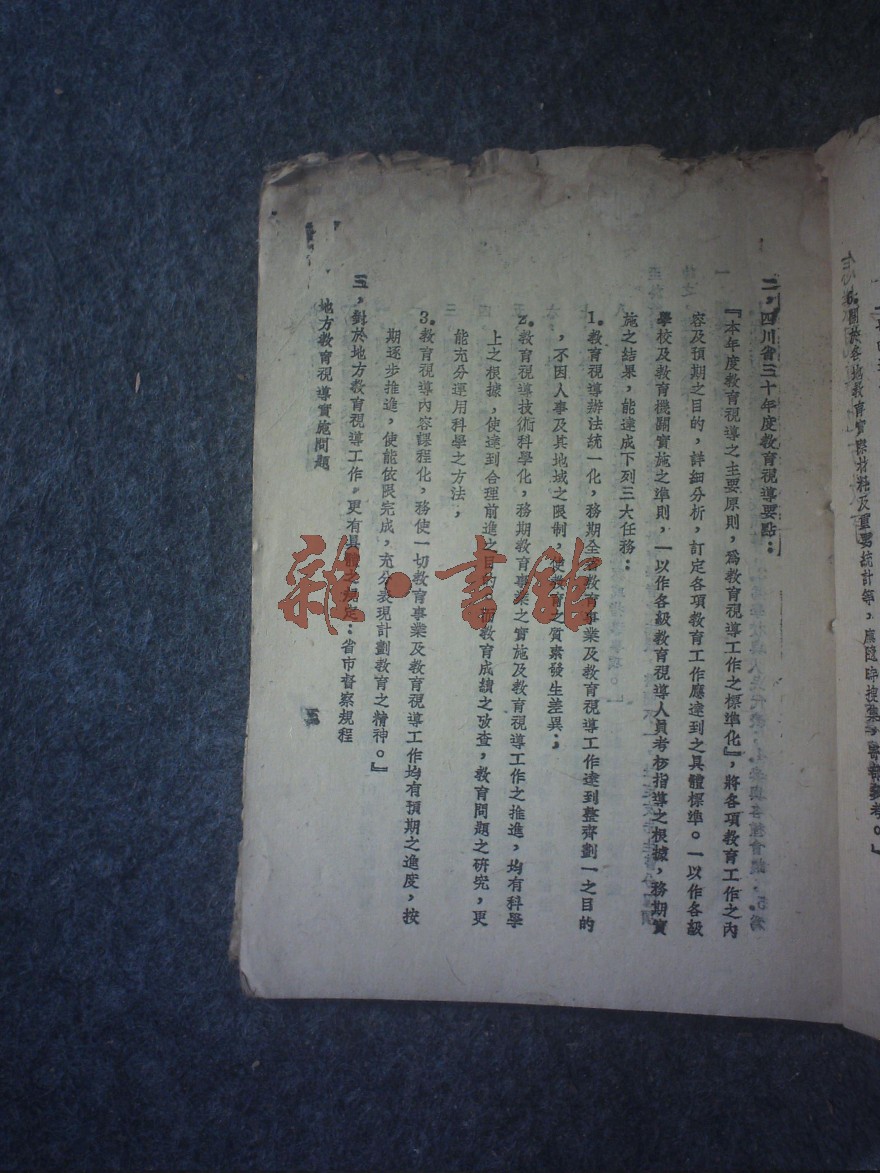 6.關於各地教育實際材料及重要統計等，應隨時搜集
二，四川省三十年度教育視導要點：
『本年度教育視導之主要原則，爲教育視導工作之標準化』，將各項教育工作之內
容及預期之目的，詳細分析，訂定各項教育工作應達到之具體標準。一以作各級
學校及教育機關實施之準則，一以作各級教育視導人員考核指導之根據，務期實
施之結果，能達成下列三大任務：
1.教育視導辦法統一化，務期全省教育事業及教育視導工作達到整齊劃一之目的
，不因人事及其地域之限制，使教育之質素發生差異；
2.教育視導技術科學化，務期教育事業之實施及教育視導工作之推進，均有科學
上之根據，使達到合理前進之目的，教育成績之攷查，教育問題之研究，更
能充分運用科學之方法，
3.教育視導內容課程化，務使一切教育事業及教育視導工作均有預期之進度，按
期逐步推進，使能依限完成，充分表現計劃教育之精神。』
三，對於地方教育視導工作，更有具體之規定：省市督察規程
地方教育視導實施問題
三
雜·書館